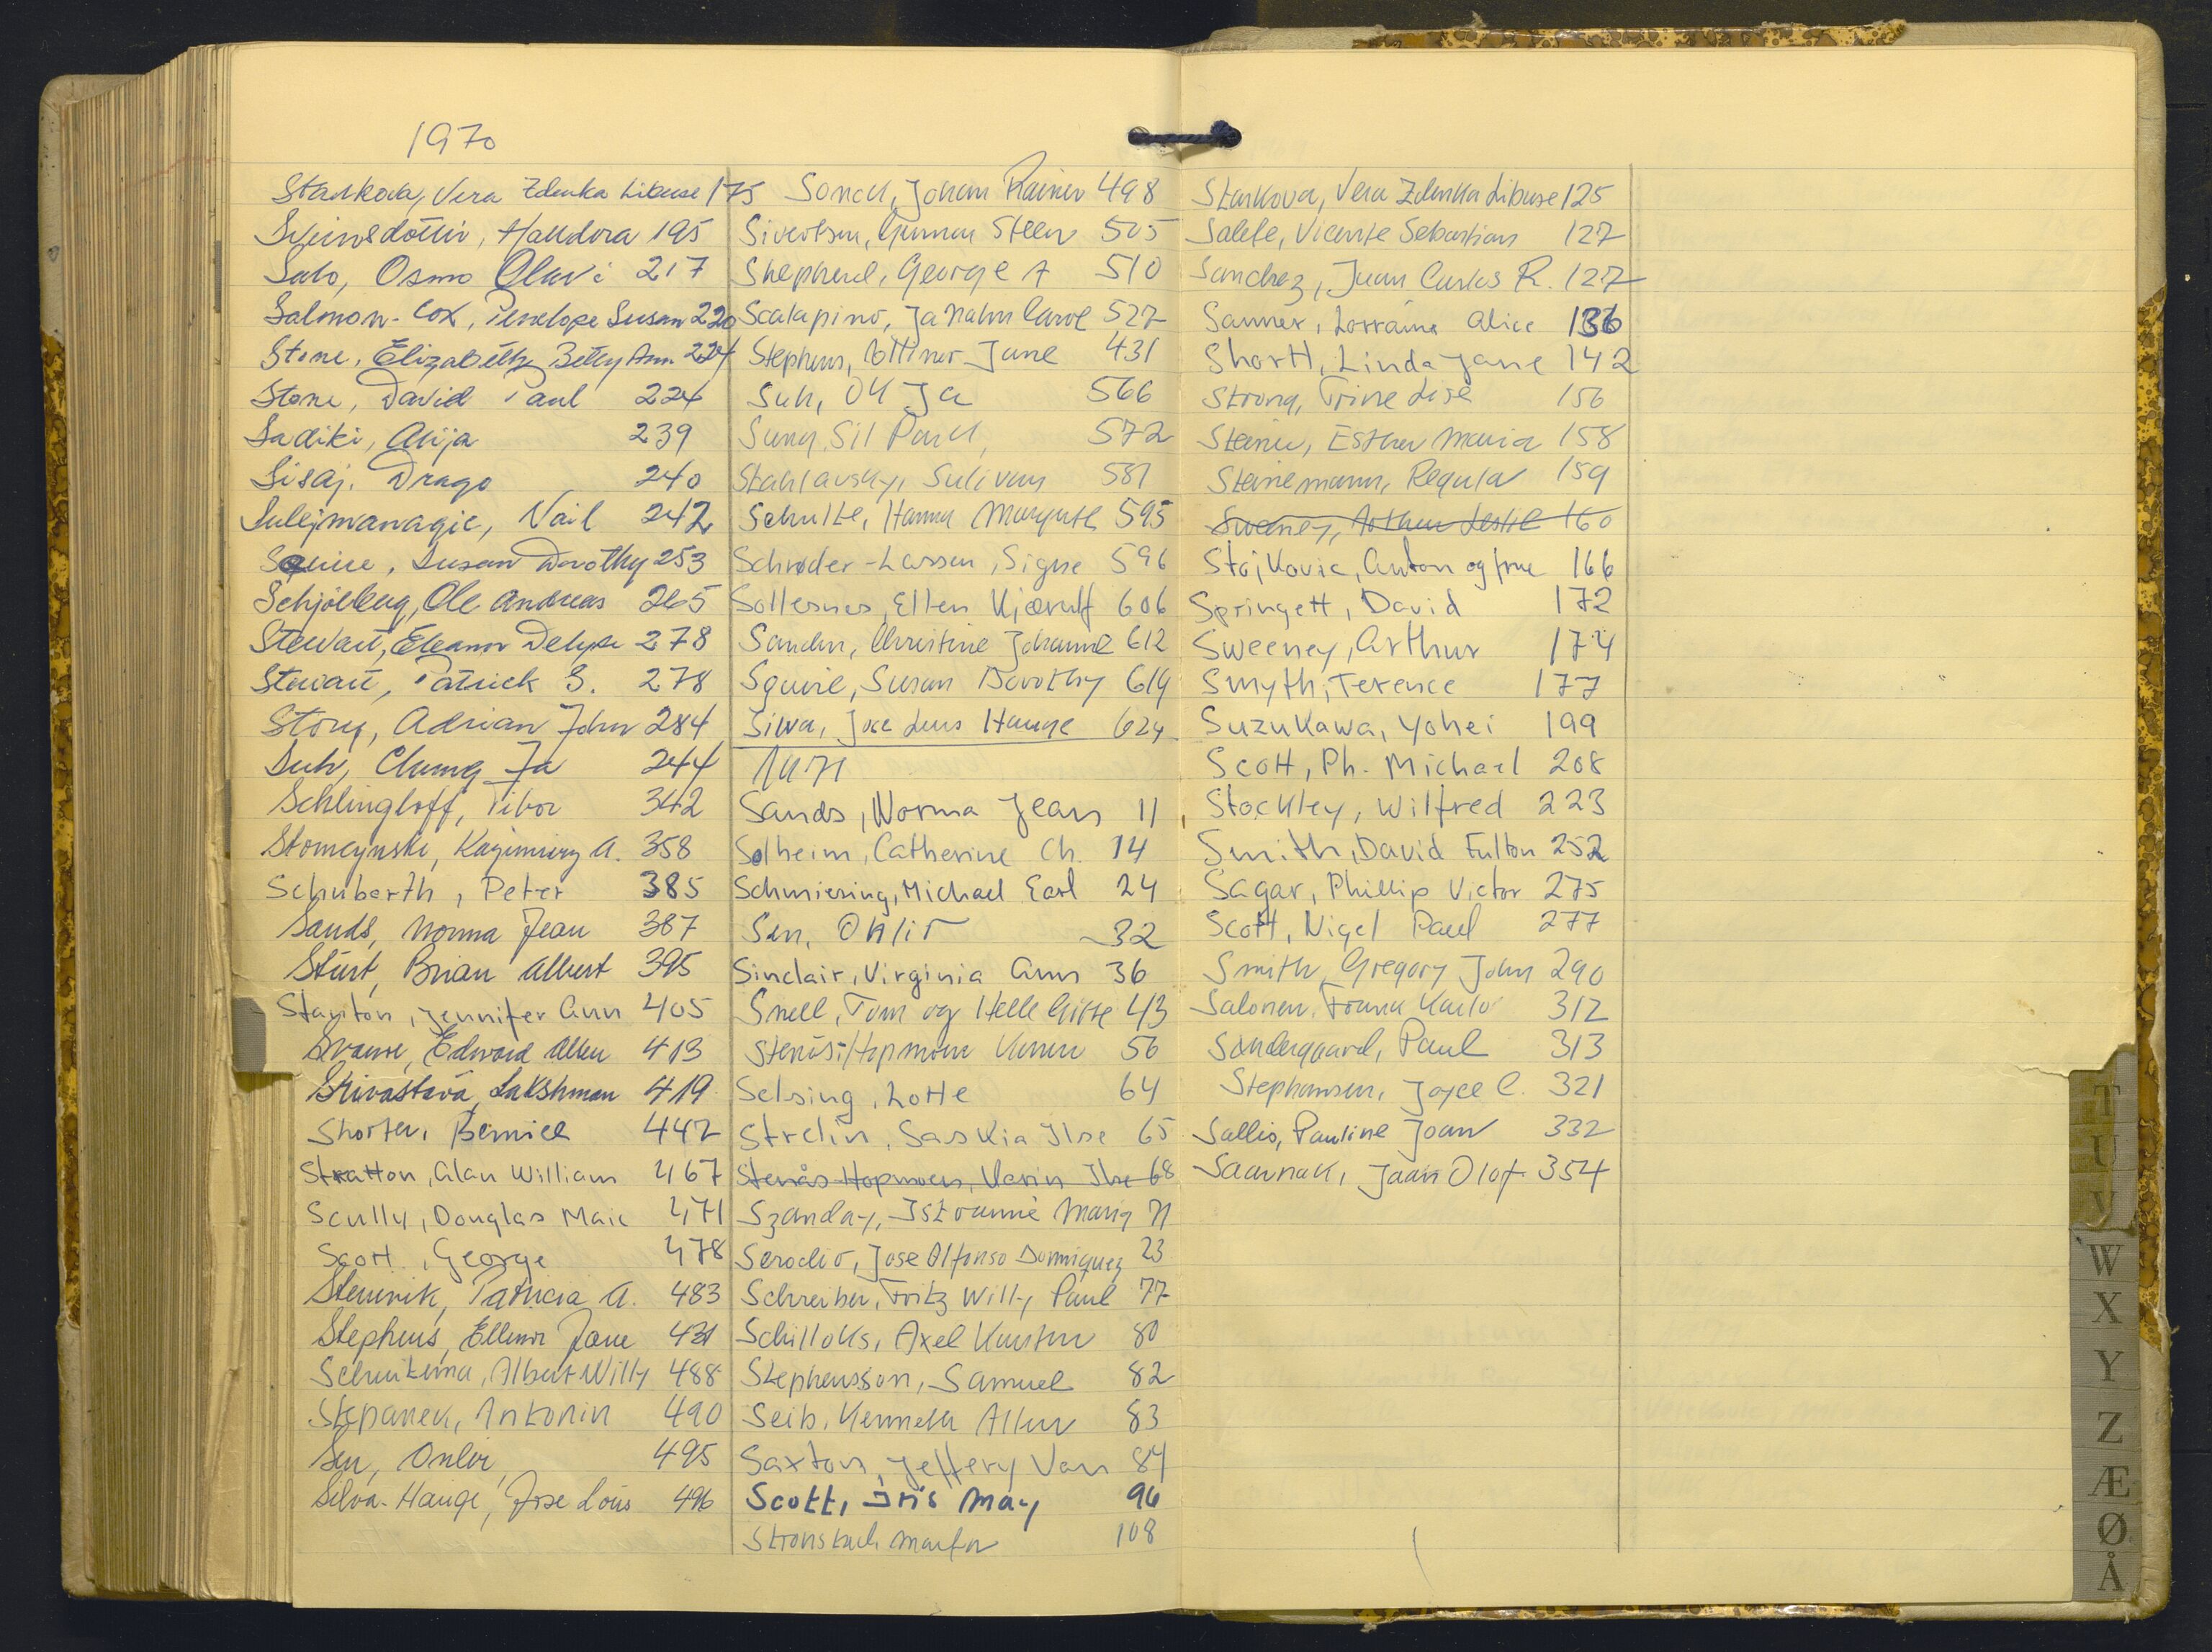 1970
Starkova, Vera Zdenka Libuse 175
Sveinsdóttir, Halldora 195
Salo, Osmo Olavi 217
Salmon-Cox, Penelope Susan 220
Stone, Elizabeth Betty Ann 224
Stone, David Paul 224
Sadiki, Alija 239
Sisaj, Drago 240
Sulejmanagic, Nail 242
Squire, Susan Dorothy 253
Schjølberg, Ole Andreas 265
Stewart, Eleanor 278
Stewart, Patrick S. 278
Story, Adrian John 284
Suh, Chung Ja 244
Schlingloff, Tibor 342
Stomcynski, Kazimierz A. 358
Schuberth, Peter 385
Sands, Norma Jean 387
Sturt, Brian Albert 395
Stayton, Jennifer Ann 405
Edward Allen 413
Srivastava, Lakshman 419
Shorter, Bernice 442
Stratton, Alan William 467
Scully, Douglas Maic 471
Scott, George 478
Patricia A. 483
Stephens, Ellinor Jane 431
Albert Willy 488
Stepanek, Antonin 490
Sen, Onlir 495
Silva-Hauge, Jose Louis 496
Sonck, Johan Rainer 498
Sivertsen, Gunnar Steen 505
Shepherd, George A 510
Scalapino, Janahn Carol 527
Stephens, Jane 431
Suh, Ok Ja 566
Sung, Sil Park, 572
Stahlavsky, Sulivan 581
Schulze, Hanna Margrethe 595
Schrøder-Larssen, Signe 596
Sollesnes, Ellen Kjærulf 606
Sanden, Christine Johanne 612
Squire, Susan Dorothy 619
Silva, Jose Luis Hauge 624
1971
Sands, Norma Jean 11
Solheim, Catherine Ch. 14
Schmiering, Michael Earl 24
Sen, Onlir 32
Sinclair, Virginia Ann 36
Snell, Tom og Helle Gitte 43
Stenås/Hopmoen Karin 56
Selsing, Lotte 64
Strelin, Saskia Ilse 65
Stenås-Hopmoen, Karin Ilse 68
Szanday, Istvanné Maria 71
Serodio, Jose Alfonso Dominquez 23
Schreiber, Fritz Willy Paul 77
Schilloks, Axel Karsten 80
Stephensson, Samuel 82
Seib, Kenneth Allen 83
Saxton, Jeffery Van 84
Scott, Iris May 96
108
Starkova, Vera Zdenka Libuse 125
Salete, Vicente Sebastian 127
Sanchez, Juan Carlos R. 127
Sanner, Lorraine Alice 136
Shortt, Linda Jane 142
Strong, Trine Lise 156
Steiner, Esther Maria 158
Steinemann, Regula 159
Sweeney, Arthur Leslie 160
Stojkovic, Anton og frue 166
Springett, David 172
Sweeney, Arthur 174
Smyth, Terence 177
Suzukawa, Yohei 199
Scott, Ph. Michael 208
Stockley, Wilfred 223
Smith, David Fulton 252
Sagar, Phillip Victor 275
Scott, Nigel Paul 277
Smith, Gregory John 290
Salonen, Karlo 312
Søndergaard, Paul 313
Stephansen, Joyce C. 321
Sallis, Pauline Joan 332
Saarnak, Jaan Olof 354
T
U
V
W
X
Y
Z
Æ
Ø
Å